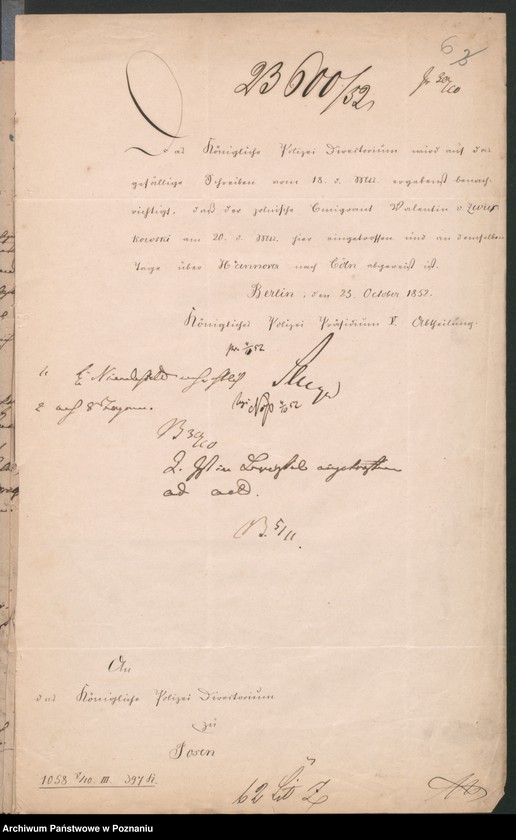 6
23600/52
pr 30/10
Das Königliche Polizei Directorium wird auf das
gefällige Schreiben vom 18. d. Mts. ergebenst benach-
richtigt, daß der polnische Emigrant Valentin v.
kowski am 20. d. Mts. hier eingetroffen und an demselben
Tage über Hannover nach Cöln abgereist ist.
Berlin, den 23. October 1852.
Königliches Polizei Präsidium V. Abtheilung.
1,
2 nach 8 Tagen.
B 30/10
Z. ist in eingetroffen
ad acta.
B. 5/11.
An
das Königliche Polizei Directorium
zu
Posen
1058 /10. III. 397 R.
62 Lit Z
Archiwum Państwowe w Poznaniu